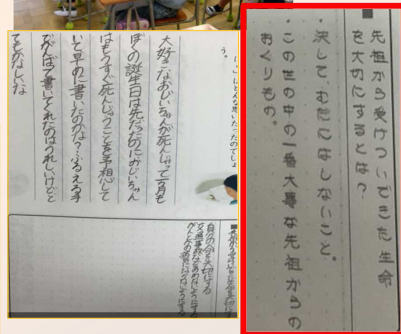 ■先祖から受けついできた生命
を大切にするとは?
・決して、むだにはしないこと。
・この世の中の一番大事な先祖からの
おくりもの。
大好きなおじいちゃんが死んじゃって一月も
ぼくの誕生日は先だったのにおじいちゃん
はもうすぐ死んじゃうことを予想して
いて早めに書いたのかな?ふるえる手
でがんばって書いてくれたのはうれしいけどと
てもかなしいな
自分の命を大切にする